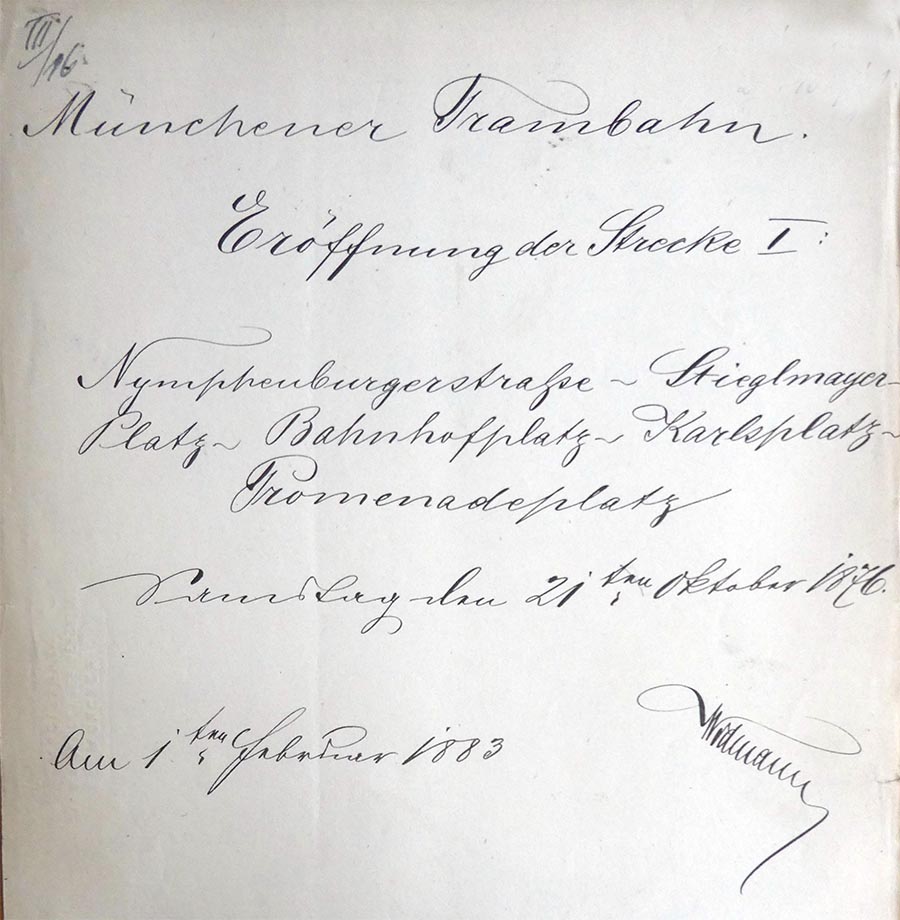 III/16.
Münchener Trambahn.
Eröffnung der Strecke I:
Nymphenburgerstraße ~ Stieglmayer-
Platz ~ Bahnhofplatz ~ Karlsplatz ~
Promenadeplatz
Samstag den 21ten Oktober 1876.
Widmann
Am 1ten Februar 1883